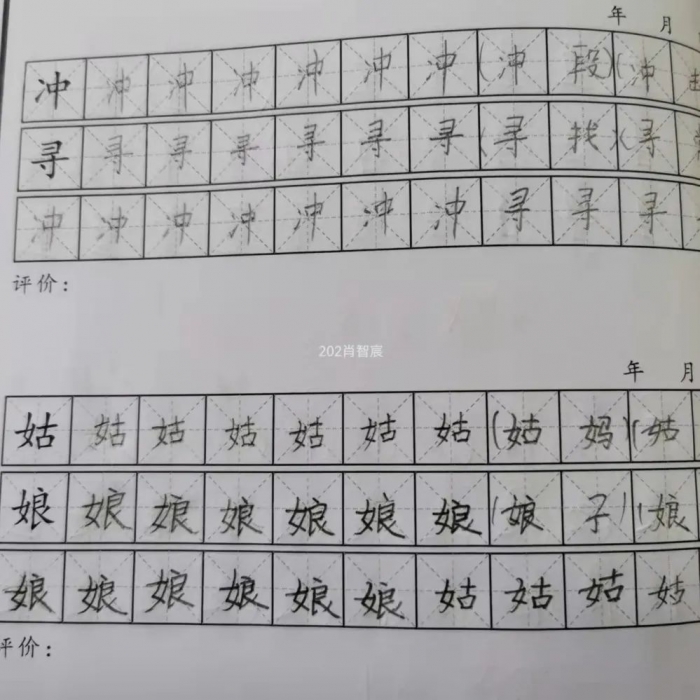 年 月
冲 冲 冲 冲 冲 冲 冲 (冲 段) (冲
寻 寻 寻 寻 寻 寻 寻 (寻 找) (寻
冲 冲 冲 冲 冲 冲 冲 寻 寻 寻
评价:
202肖智宸
年 月
姑 姑 姑 姑 姑 姑 姑 (姑 妈) (姑
娘 娘 娘 娘 娘 娘 娘 (娘 子) (娘
娘 娘 娘 娘 娘 娘 姑 姑 姑 姑
评价: